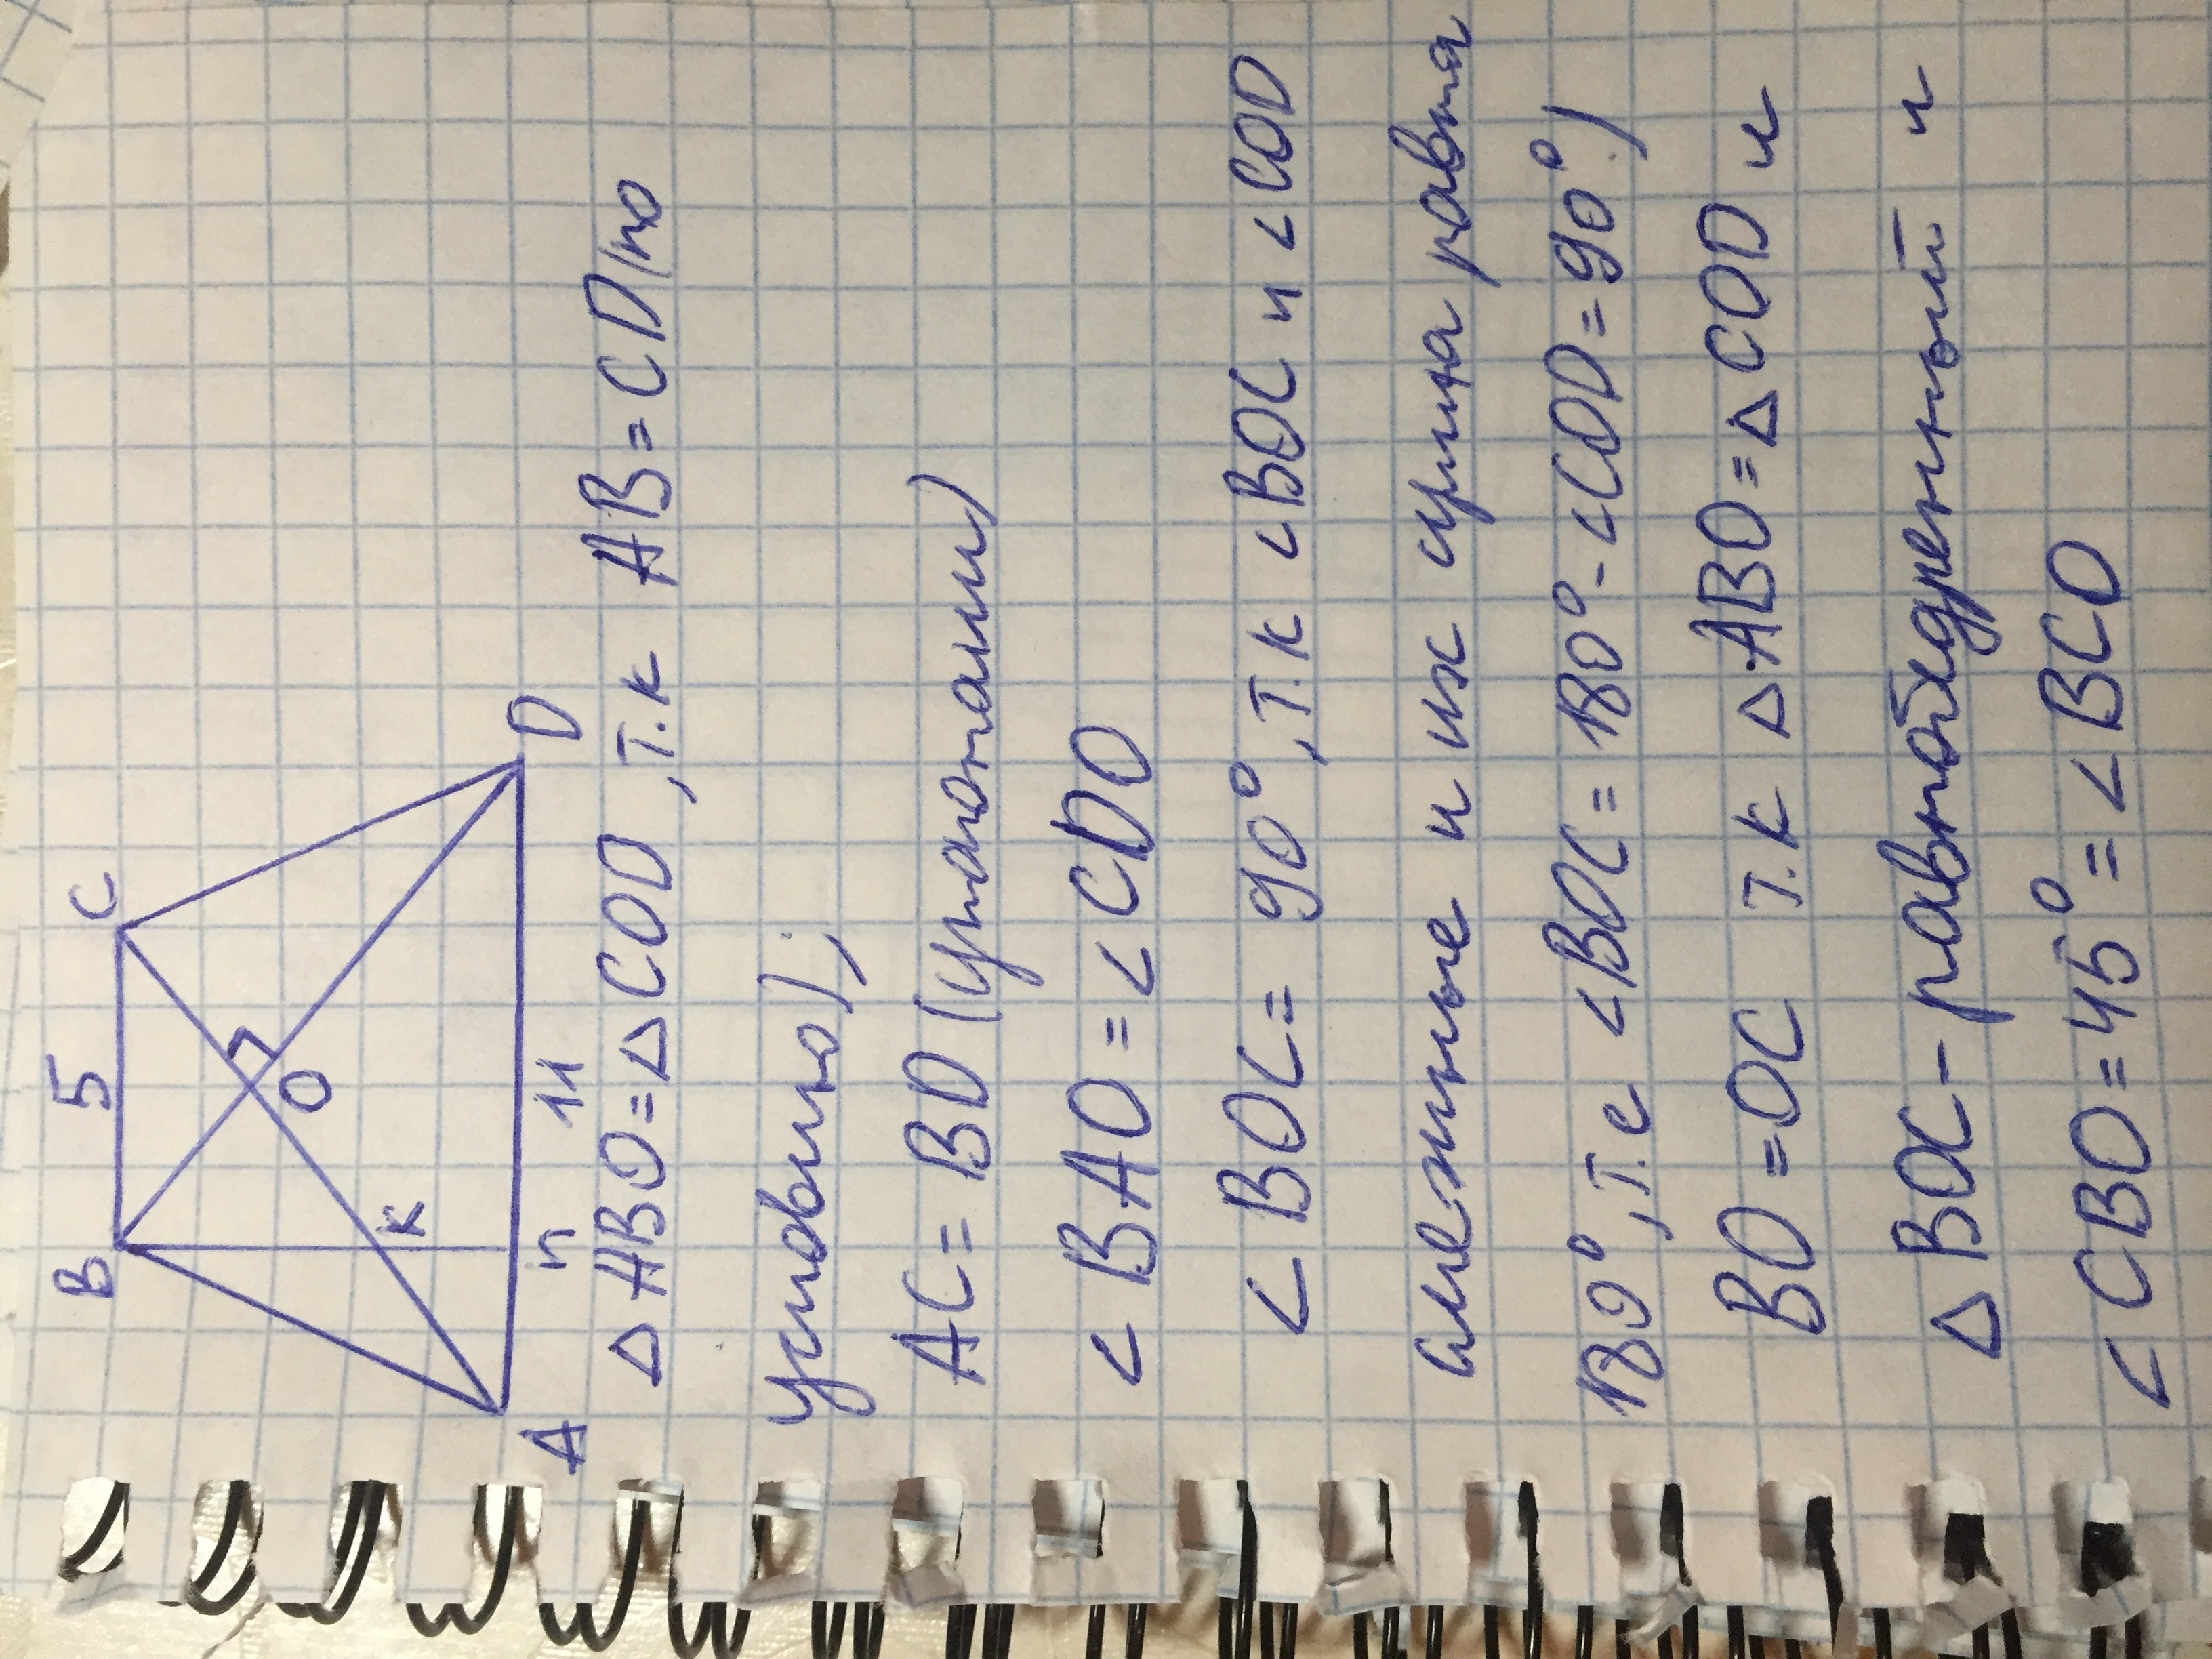 B 5 C
O
K
A н 11 D
△ABO=△COD, т.к AB=CD(по
условию);
AC=BD(
<BAO=<CDO
<BOC=90°, т.к <BOC и <COD
смежные и их сумма равна
180°, т.е <BOC=180°-<COD=90°.)
BO=OC т.к △ABO=△COD и
△BOC-равнобедренный и
<CBO=45°=<BCO